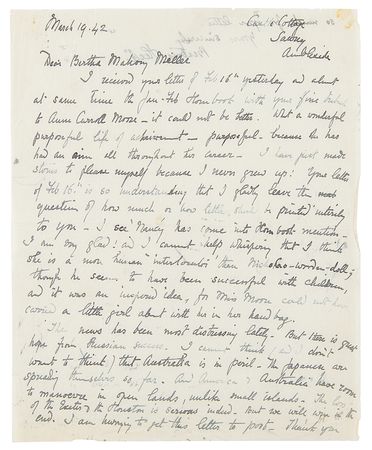 March 19. 42
Castle Cottage
Sawrey
Ambleside
Dear Bertha Mahony Miller
I received your letter of Feb 16th yesterday and about
at same time the Jan-Feb Hornbook with your fine tribute
to Anne Carroll Moore – it could not be better. What a wonderful
purposeful life of achievement – purposeful – because she has
had an aim all throughout her career – I have just made
stories to please myself because I never grew up! Your letter
of Feb 16th is so understanding that I gladly leave the
question of how much or how little is printed entirely
to you – I see Nancy has come into Hornbook mention –
I am very glad: and I cannot help whispering that I think
she is a more human interlocutor than Nicholas – wooden-doll;
though he seems to have been successful with children,
and it was an inspired idea, for Miss Moore could not have
carried a little girl about with her in her hand bag.
The news has been most distressing lately. But there is great
hope from Russian success. I cannot think (and I don't
want to think) that Australia is in peril. The Japanese are
spreading themselves so far. And America & Australia have room
to manoeuvre in open lands, unlike small islands. The loss
of the Exeter & the Houston is serious indeed. But we will win in the
end. I am hurrying to get this letter to post – Thank you